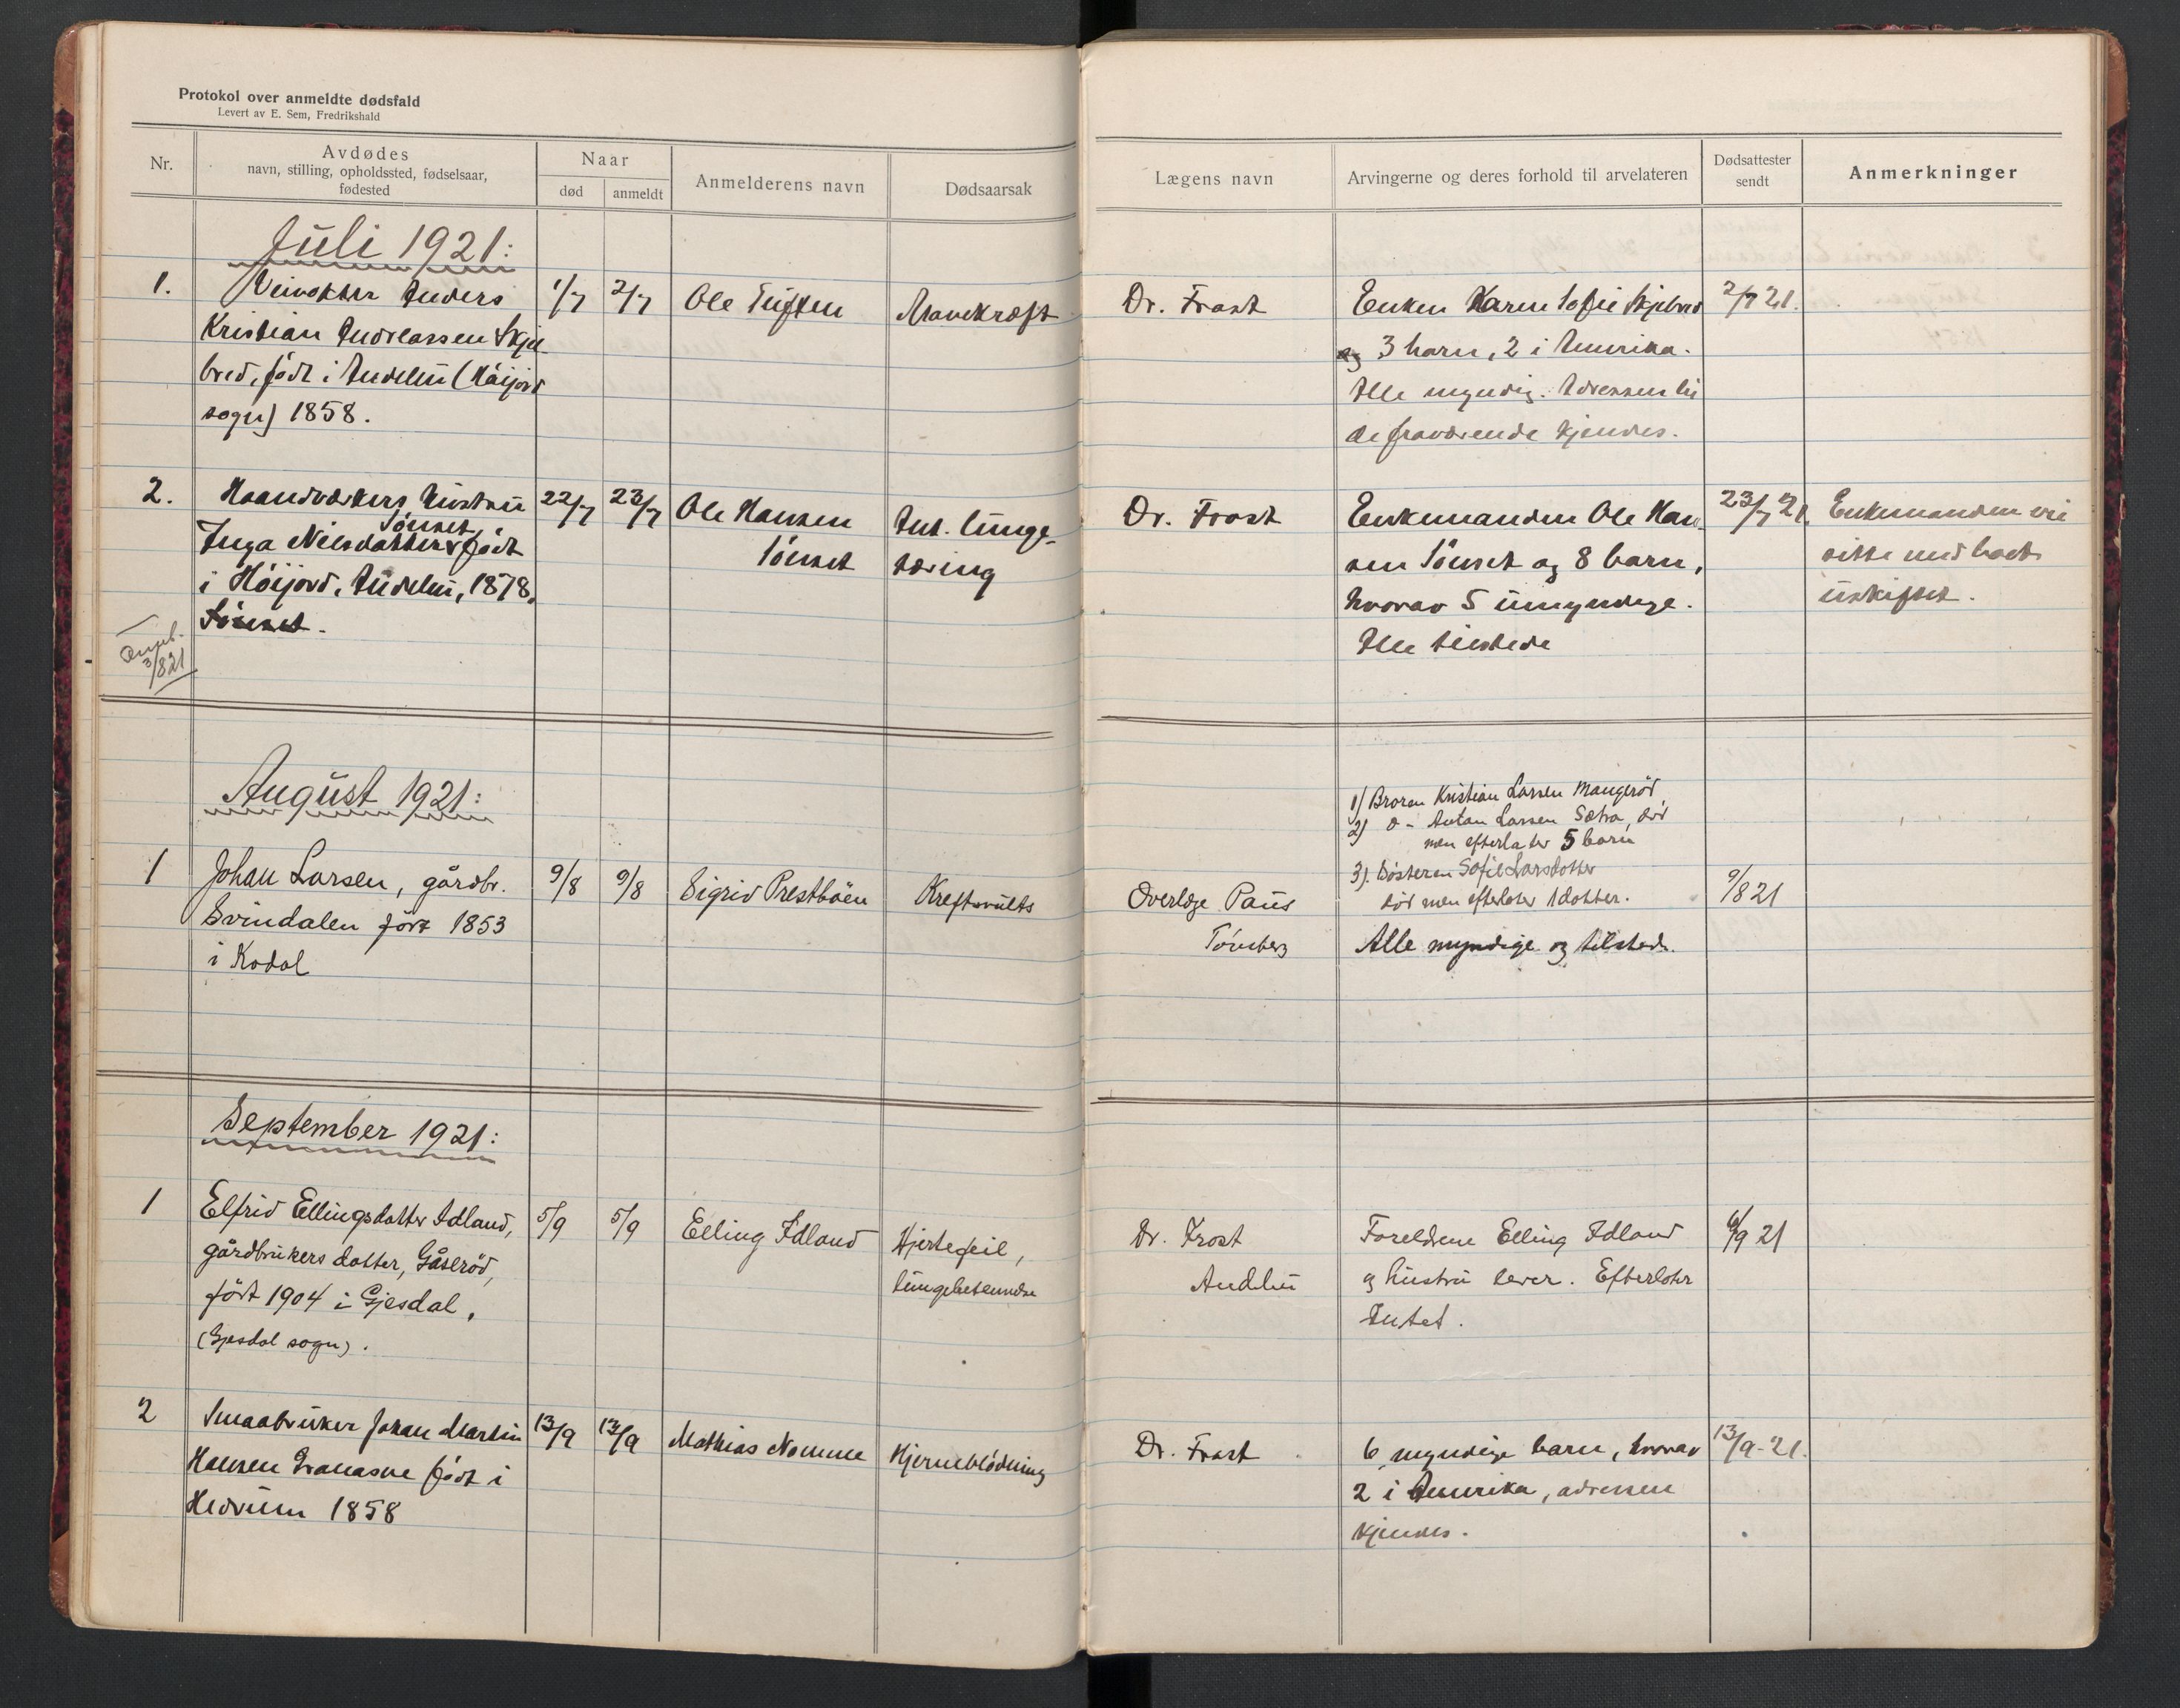 Protokol over anmeldte dødsfald
Levert av E. Sem, Fredrikshald
Nr.
Avdødes
navn, stilling, opholdssted, fødselsaar,
fødested
Naar
død
anmeldt
Anmelderens navn
Dødsaarsak
Lægens navn
Arvingerne og deres forhold til arvelateren
Dødsattester
sendt
Anmerkninger
Juli 1921:
1.
Veivokter Anders
Kristian Andreassen Skjel-
bred, födt i Andebu (Höijord
sogn) 1858.
1/7
2/7
Ole Tuften
Mavekræft
Dr. Frost
Enken Karen Sofie Skjelbred
og 3 barn, 2 i Amerika.
Alle myndig. Adressen til
de fraværende kjendes.
2/7 21.
2.
Haandverkers hustru
Inga Nilsdatter Sönset, födt
i Höijord, Andebu, 1878.
Sönset.
22/7
23/7
Ole Hansen
Sönset
Ant. lunge-
tæring
Dr. Frost
Enkemanden Ole Han-
sen Sönset og 8 barn,
hvorav 5 umyndige.
Alle tilstede
23/7 21.
Enkemanden vil
sitte med boet
uskiftet.
3/8 21
August 1921:
1
Johan Larsen, gårdbr.
Svindalen födt 1853
i Kodal
9/8
9/8
Sigrid Prestböen
Kreftsvulst
Overlæge Paus
Tönsberg
1) Broren Kristian Larsen Mangeröd
2) d- Anton Larsen Sætra, död
men efterlater 5 barn
3). Sösteren Sofie Larsdotter
död men efterlater 1 dotter.
Alle myndige og tilstede.
9/8 21
September 1921:
1
Elfrid Ellingsdotter Idland,
gårdbrukers dotter, Gåseröd,
födt 1904 i Gjesdal,
(Gjesdal sogn).
5/9
5/9
Elling Idland
Hjertefeil,
lungebetendelse
Dr. Frost
Andebu
Foreldrene Elling Idland
og hustru lever. Efterlater
Intet.
6/9 21
2
Smaabruker Johan Martin
Hansen Granasne födt i
Hedrum 1858
13/9
13/9
Mathias Nomme
Hjerneblödning
Dr. Frost
6 myndige barn, hvorav
2 i Amerika, adressen
kjendes.
13/9-21.